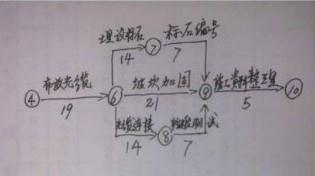 埋设标石 ⑦ 标石编号
14 7
④ 布放光缆 ⑥ 坡坎加固 ⑨ 竣工资料整理 ⑩
19 21 5
光缆连接 ⑧ 测试
14 7